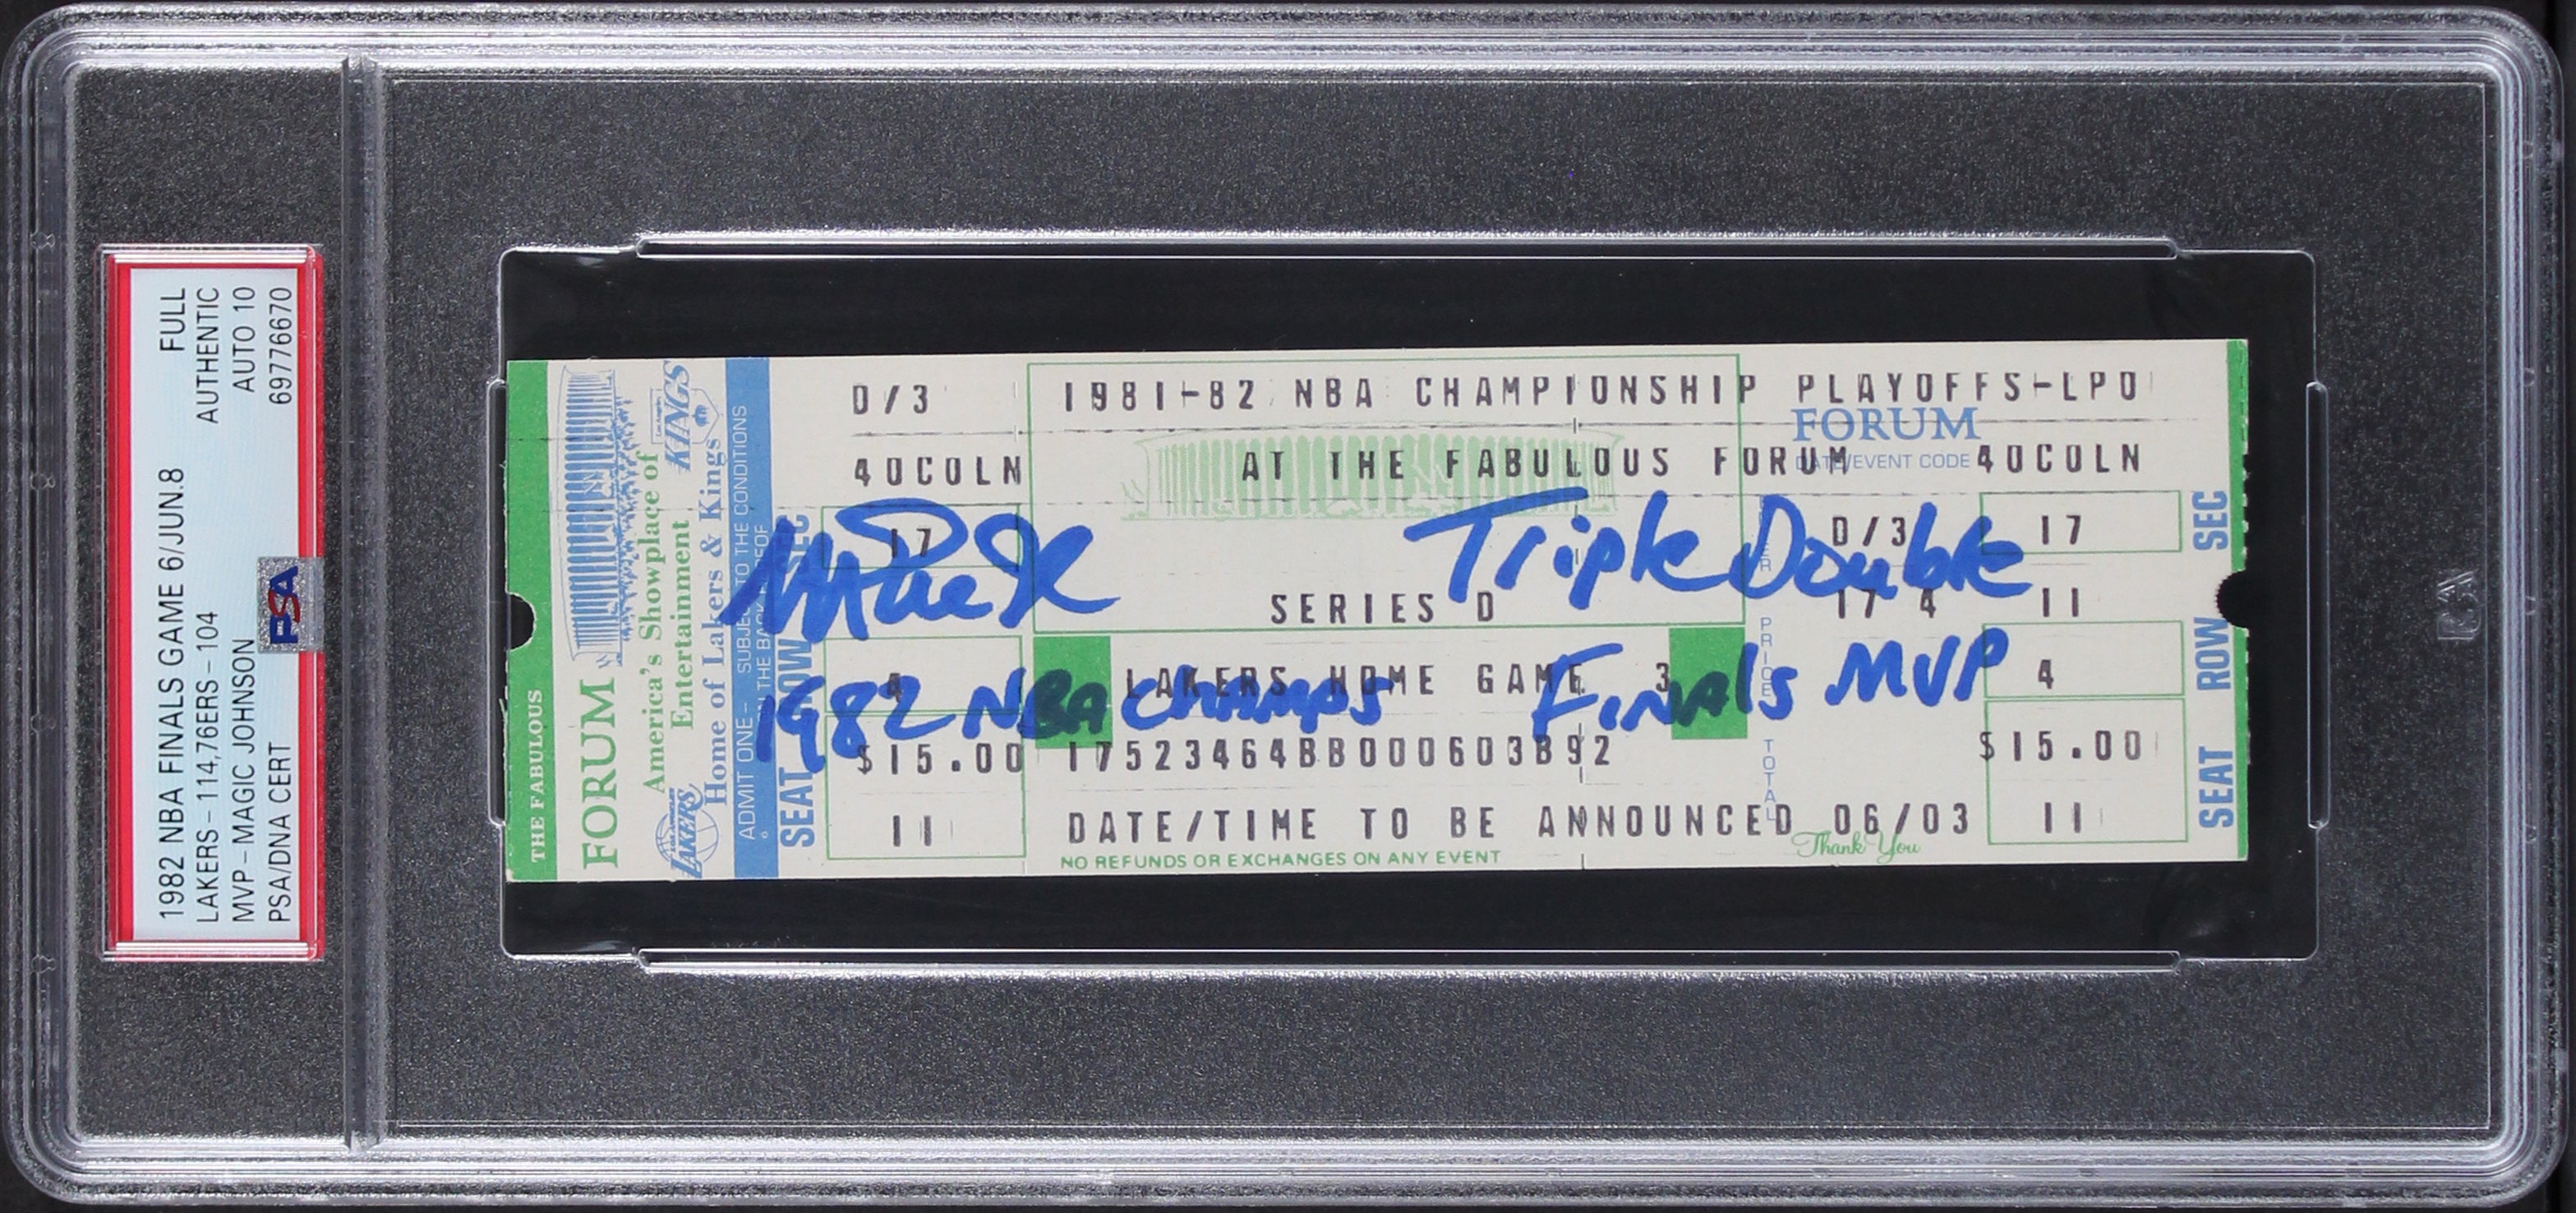 1982 NBA FINALS GAME 6/JUN.8 FULL
LAKERS - 114,76ERS - 104 AUTHENTIC
MVP - MAGIC JOHNSON AUTO 10
PSA/DNA CERT 69776670
PSA
THE FABULOUS
FORUM
America's Showplace of
Entertainment
Home of Lakers & Kings
LAKERS
KINGS
ADMIT ONE - SUBJECT TO THE CONDITIONS
ON THE BACK
SEAT ROW SEC
D/3 1981-82 NBA CHAMPIONSHIP PLAYOFFS-LPO
FORUM
DATE/EVENT CODE
40COLN AT THE FABULOUS FORUM 40COLN
17 D/3 17
Magic Triple Double
SERIES D 17 4 11
4 LAKERS HOME GAME 3 4
1982 NBA Champs Finals MVP
PRICE
$15.00 17523464BB000603B92 $15.00
TOTAL
11 DATE/TIME TO BE ANNOUNCED 06/03 11
NO REFUNDS OR EXCHANGES ON ANY EVENT
Thank You
SEAT ROW SEC